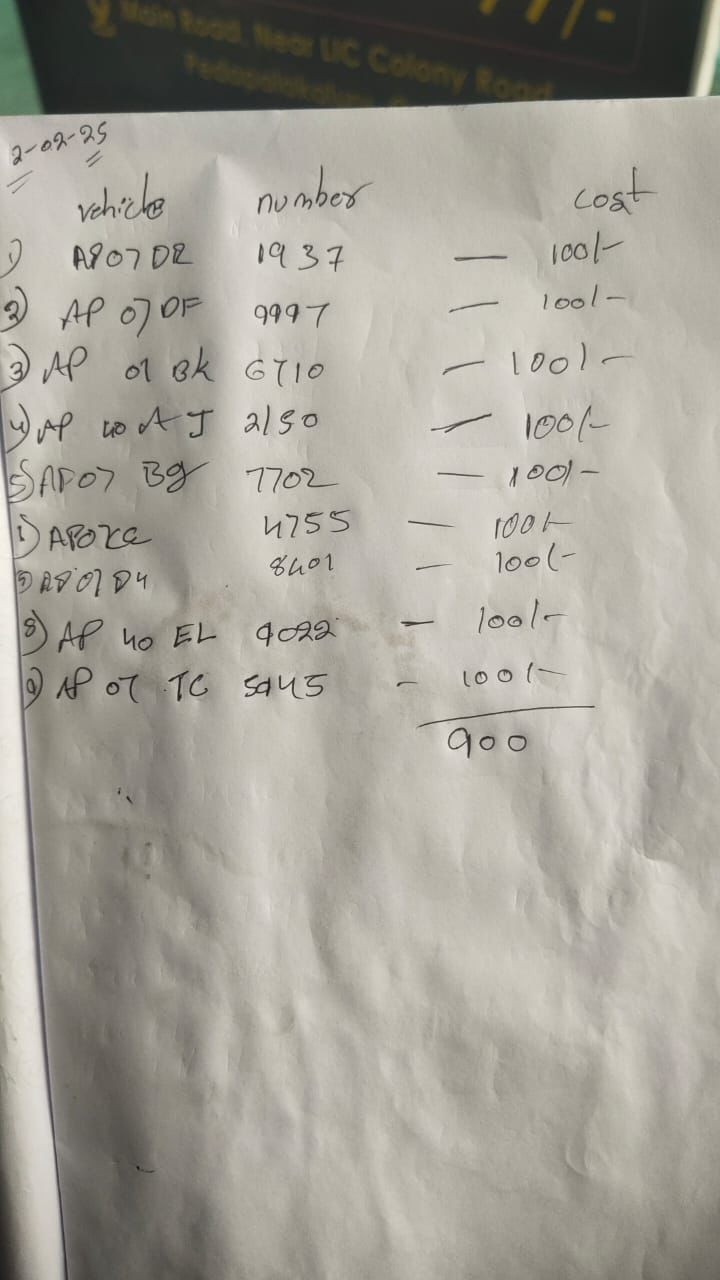 Main Road, Near LIC Colony Road
2-02-25
vehicle number cost
1) AP07 DR 1937 — 100/-
2) AP 07 DF 9997 — 100/-
3) AP 07 BK 6710 — 100/-
4) AP 40 AJ 2150 — 100/-
5) AP07 Bg 7702 — 100/-
4755 — 100/-
8401 — 100/-
8) AP 40 EL 9022 — 100/-
9) AP 07 TC 5945 - 100/-
900